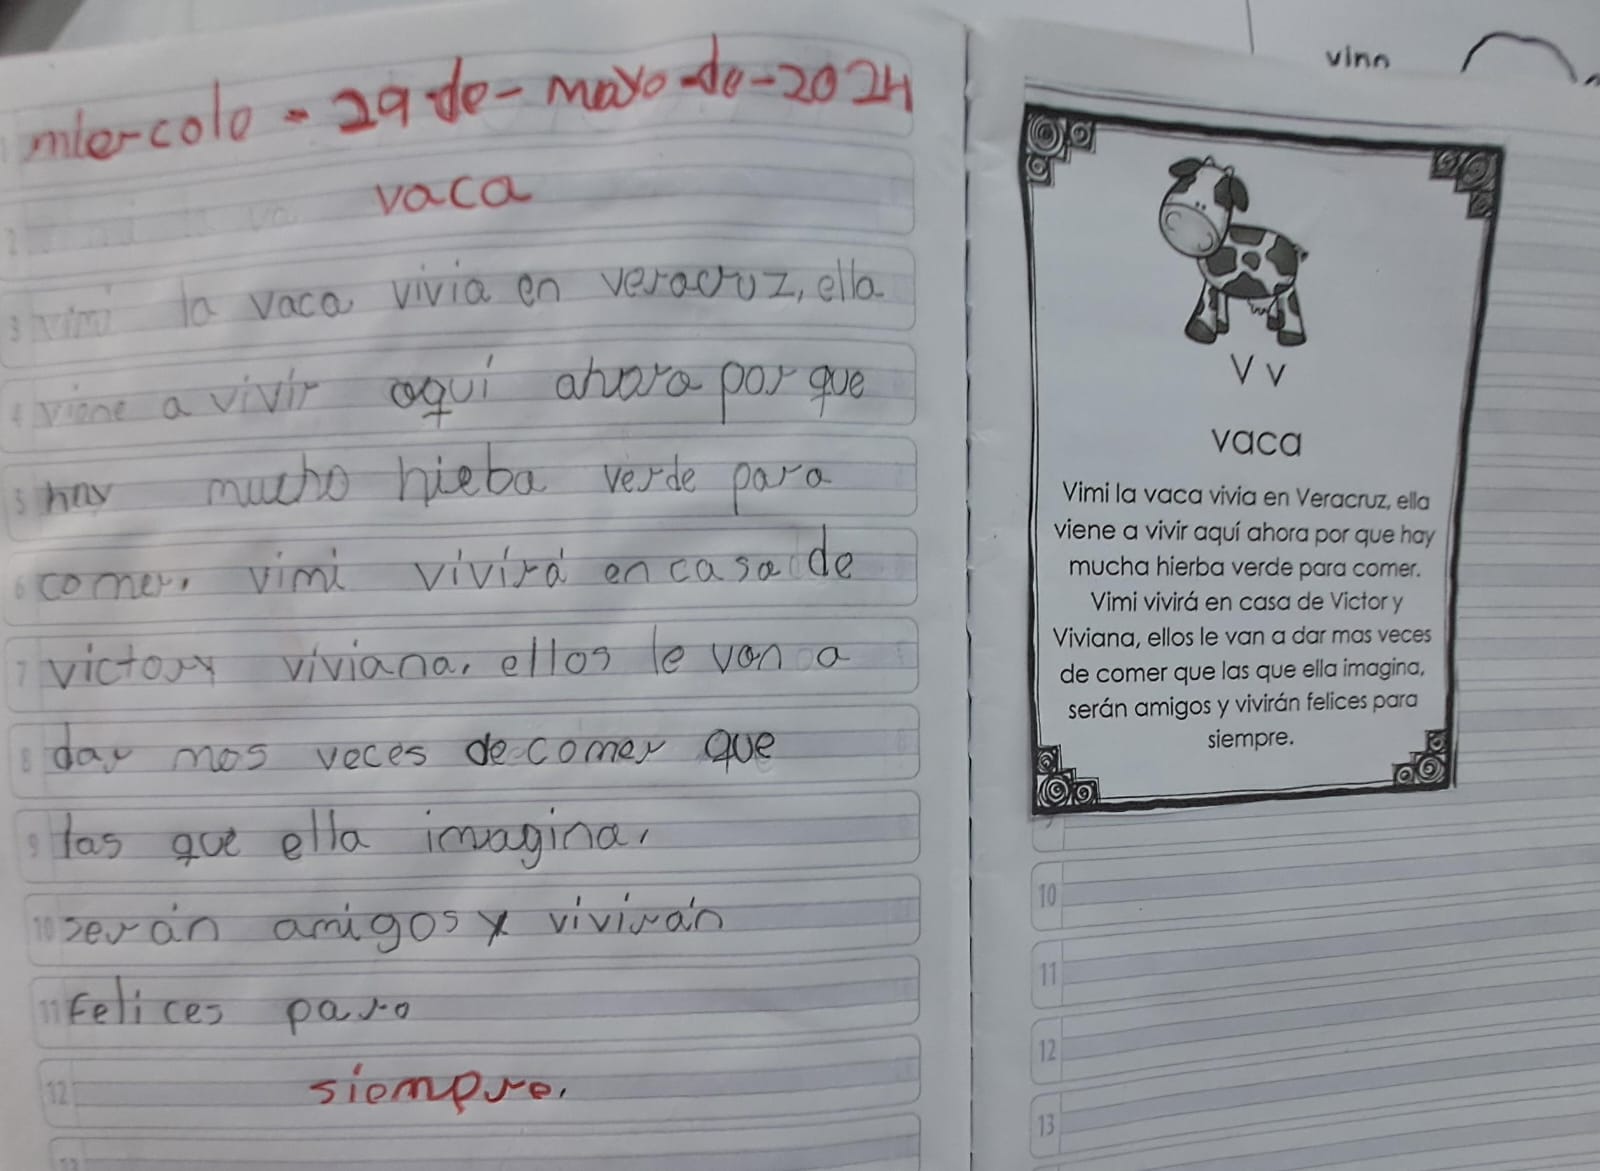 miercole - 29-de-mayo-de-2024
vaca
vimi la vaca vivia en veracruz, ella
viene a vivir aquí ahora por que
hay mucho hieba verde para
comer. vimi vivirá en casa de
victory viviana, ellos le van a
dar mas veces de comer que
las que ella imagina,
serán amigos y vivirán
felices para
siempre.
vinn
V v
vaca
Vimi la vaca vivia en Veracruz, ella
viene a vivir aquí ahora por que hay
mucha hierba verde para comer.
Vimi vivirá en casa de Victor y
Viviana, ellos le van a dar mas veces
de comer que las que ella imagina,
serán amigos y vivirán felices para
siempre.